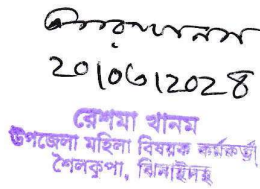 ২০/০৩/২০২৪
রেশমা খানম
উপজেলা মহিলা বিষয়ক কর্মকর্তা
শৈলকুপা, ঝিনাইদহ